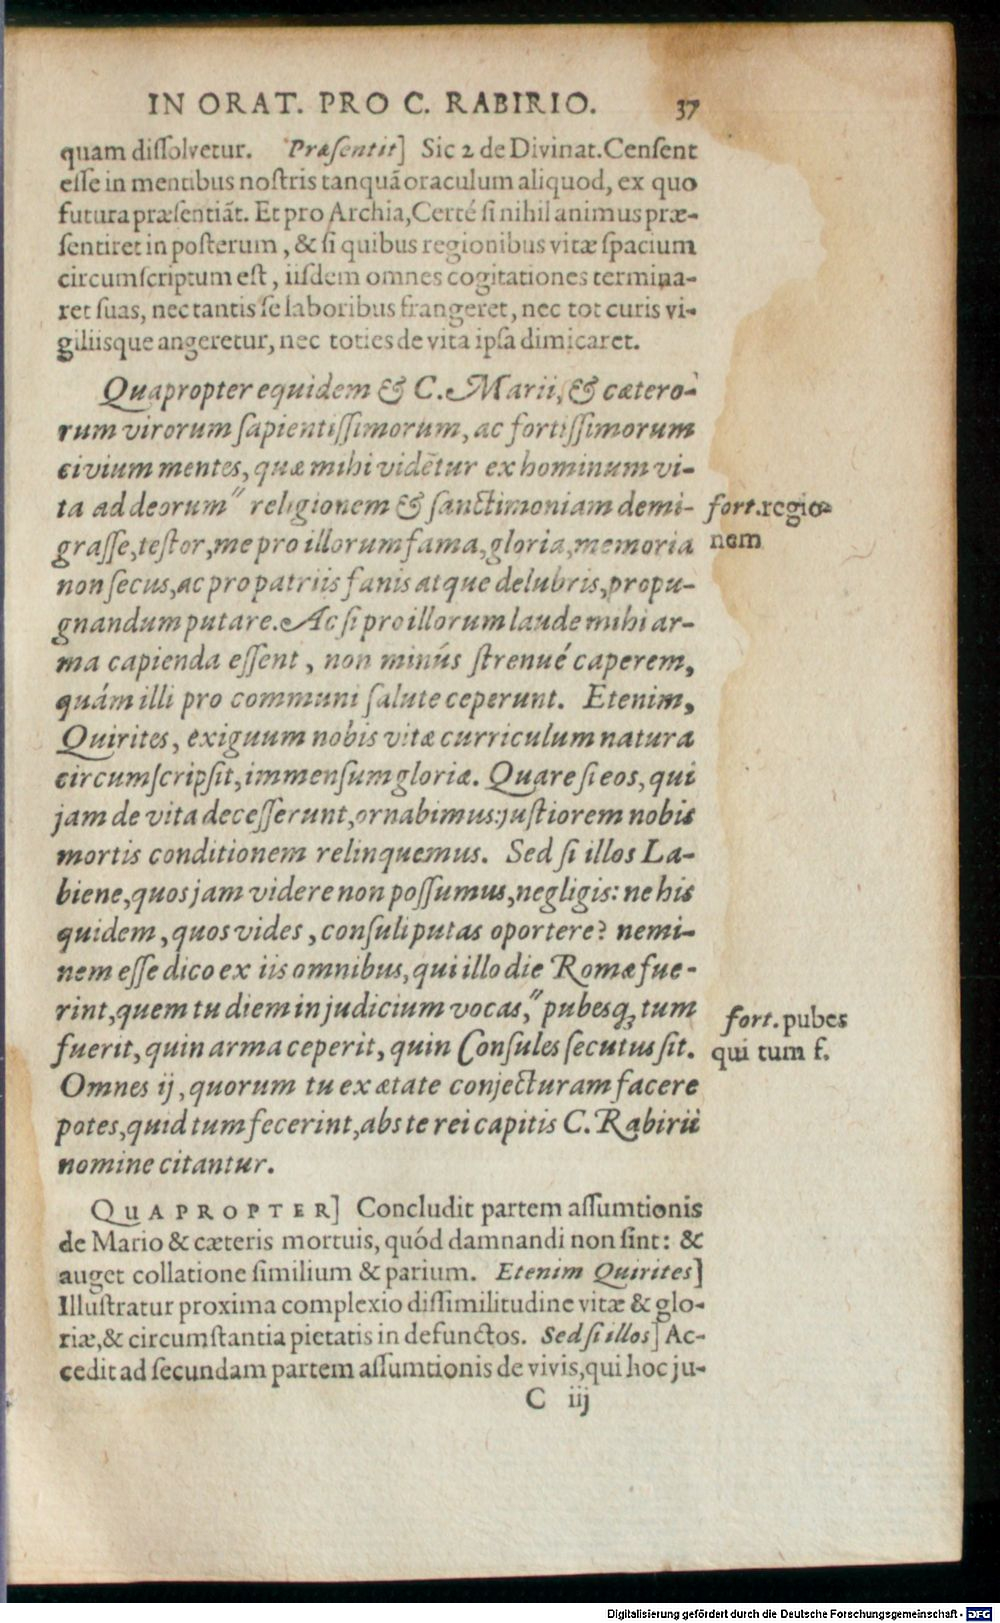 IN ORAT. PRO C. RABIRIO. 37
quam dissolvetur. Præsentit] Sic 2 de Divinat. Censent
esse in mentibus nostris tanquã oraculum aliquod, ex quo
futura præsentiãt. Et pro Archia, Certé si nihil animus præ-
sentiret in posterum, & si quibus regionibus vitæ spacium
circumscriptum est, iisdem omnes cogitationes termina-
ret suas, nec tantis se laboribus frangeret, nec tot curis vi-
giliisque angeretur, nec toties de vita ipsa dimicaret.
Quapropter equidem & C. Marii, & cætero-
rum virorum sapientissimorum, ac fortissimorum
civium mentes, quæ mihi vidẽtur ex hominum vi-
ta ad deorum" religionem & sanctimoniam demi-
grasse, testor, me pro illorum fama, gloria, memoria
non secus, ac pro patriis fanis atque delubris, propu-
gnandum putare. Ac si pro illorum laude mihi ar-
ma capienda essent, non minús strenué caperem,
quám illi pro communi salute ceperunt. Etenim,
Quirites, exiguum nobis vitæ curriculum natura
circumscripsit, immensum gloriæ. Quare si eos, qui
jam de vita decesserunt, ornabimus: justiorem nobis
mortis conditionem relinquemus. Sed si illos La-
biene, quos jam videre non possumus, negligis: ne his
quidem, quos vides, consuli putas oportere? nemi-
nem esse dico ex iis omnibus, qui illo die Romæ fue-
rint, quem tu diem in judicium vocas, "pubesq; tum
fuerit, quin arma ceperit, quin Consules secutus sit.
Omnes ij, quorum tu ex ætate conjecturam facere
potes, quid tum fecerint, abs te rei capitis C. Rabirii
nomine citantur.
fort. regio-
nem
fort. pubes
qui tum f.
QUAPROPTER] Concludit partem assumtionis
de Mario & cæteris mortuis, quód damnandi non sint: &
auget collatione similium & parium. Etenim Quirites]
Illustratur proxima complexio dissimilitudine vitæ & glo-
riæ, & circumstantia pietatis in defunctos. Sed si illos] Ac-
cedit ad secundam partem assumtionis de vivis, qui hoc ju-
C iij
Digitalisierung gefördert durch die Deutsche Forschungsgemeinschaft - DFG